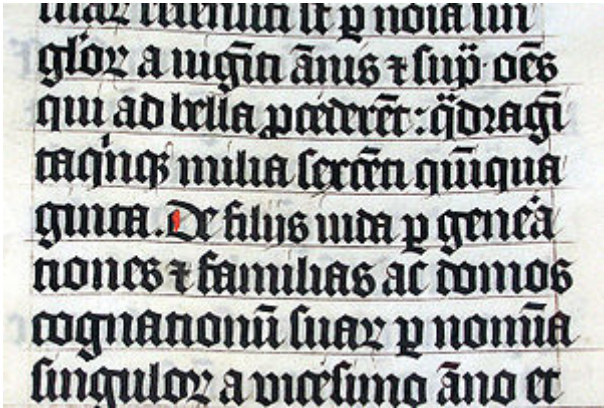 suaꝝ recensiti sūt ꝑ noīa sin
gloꝝ a uigīti ānis ⁊ supͣ· oēs
qui ad bella ꝓcederēt: qͣdragī
taqͥnqꝫ milia sexcēti quīqua
ginta. De filijs iuda ꝑ geneͣa
tiones ⁊ familias ac domos
cognationū suaꝝ ꝑ nomīa
singuloꝝ a vicesimo āno et